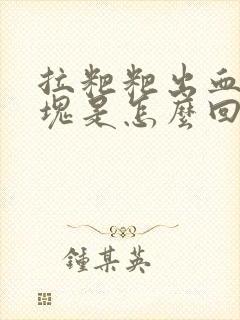 拉粑粑出血
塊是怎麼回
鍾某英